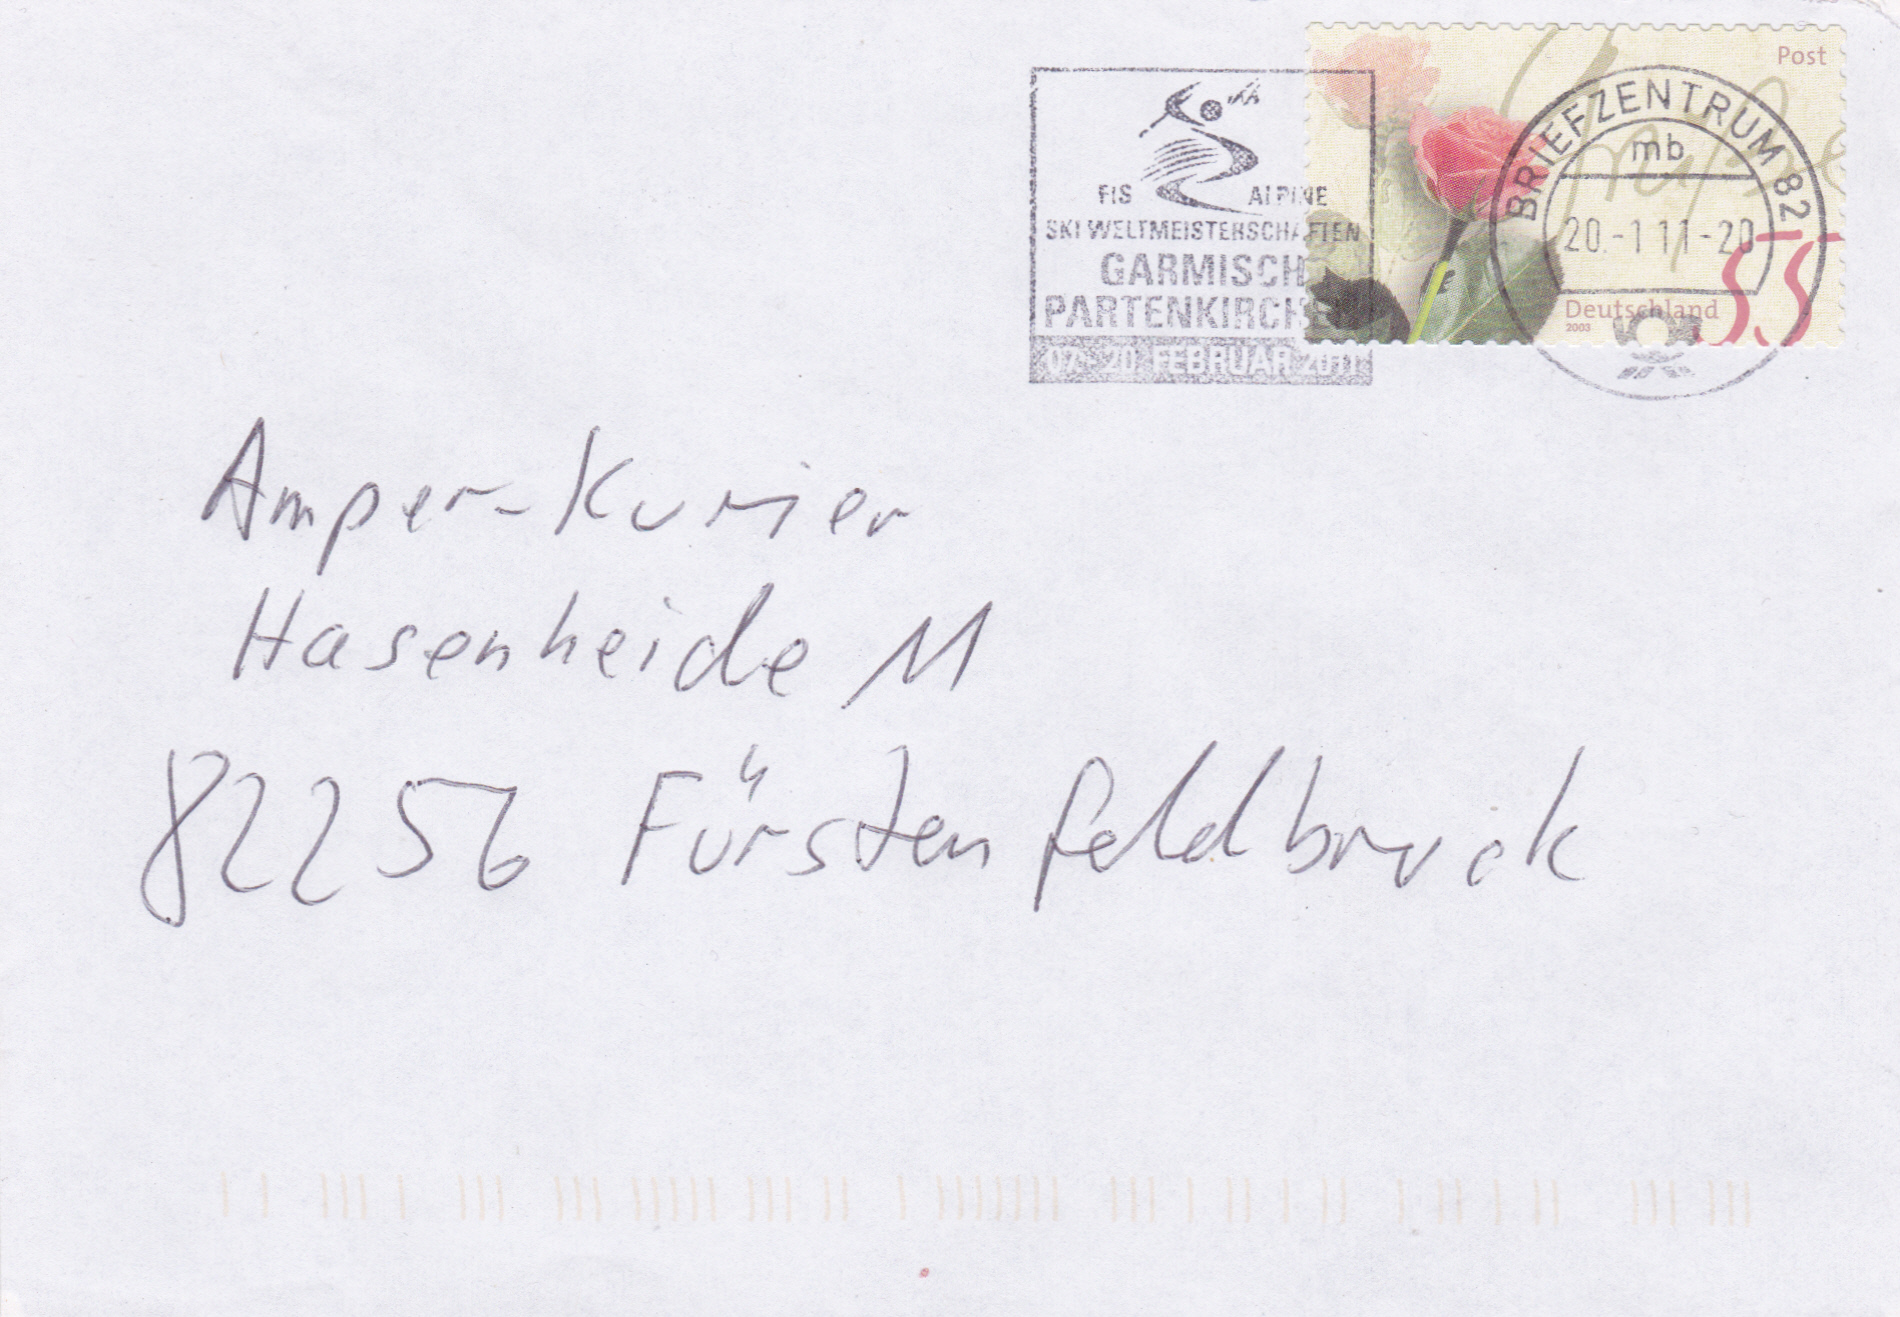 Post
Grüße
55
Deutschland
2003
BRIEFZENTRUM 82
mb
20.-1 11-20
FIS ALPINE
SKI WELTMEISTERSCHAFTEN
GARMISCH
PARTENKIRCHEN
07.-20. FEBRUAR 2011
Amper-Kurier
Hasenheide 11
82256 Fürstenfeldbruck